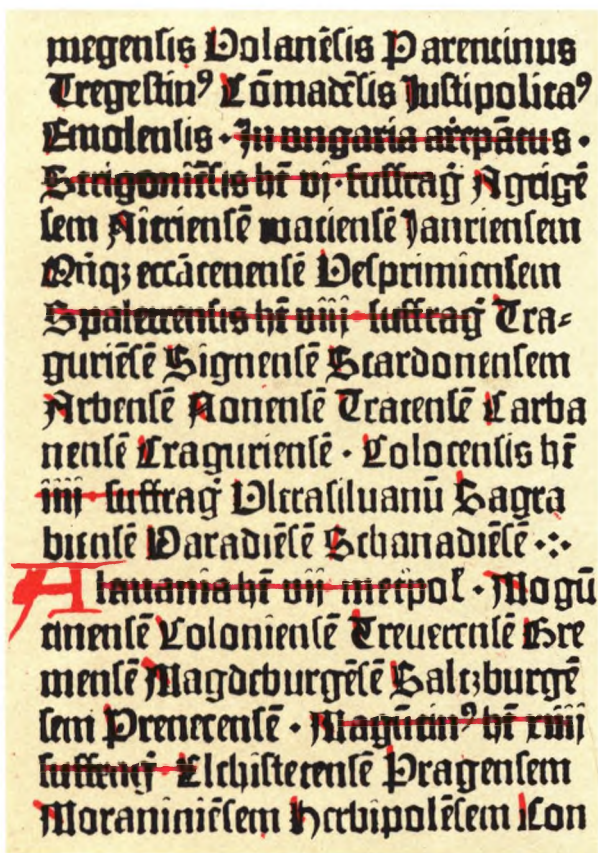 megenſis Volanēſis Parentinus
Tregeſtin⁹ Comacēſis Juſtipolita⁹
Emolenſis · In ongaria arēpātus ·
Strigoniēſis ht̄ vj · ſuffrag̅ Agrigē
ſem Nitrienſē watienſē Janrienſem
eccāetenenſē Veſprimienſem
Spaletrenſis ht̄ viij ſuffrag̅ Tra⸗
guriēſē Signenſē Scardonenſem
Arbenſē Nonenſē Tratenſē Carba
nenſē Tragurienſē · Colocenſis ht̄
iiij · ſuffrag̅ Vltraſiluanū Sagra
bienſē Waradiēſē Schanadiēſē ·:·
Alauania ht̄ vij metpol̄ · Mogū
tinenſē Colonienſē Treuerenſē Bre
menſē Magdeburgēſē Saltzburgē
ſem Prenecenſē · Magūtin⁹ ht̄ xiiij
ſuffrag̅ · Elchiſtetenſē Pragenſem
Moraniniēſem Herbipolēſem Con